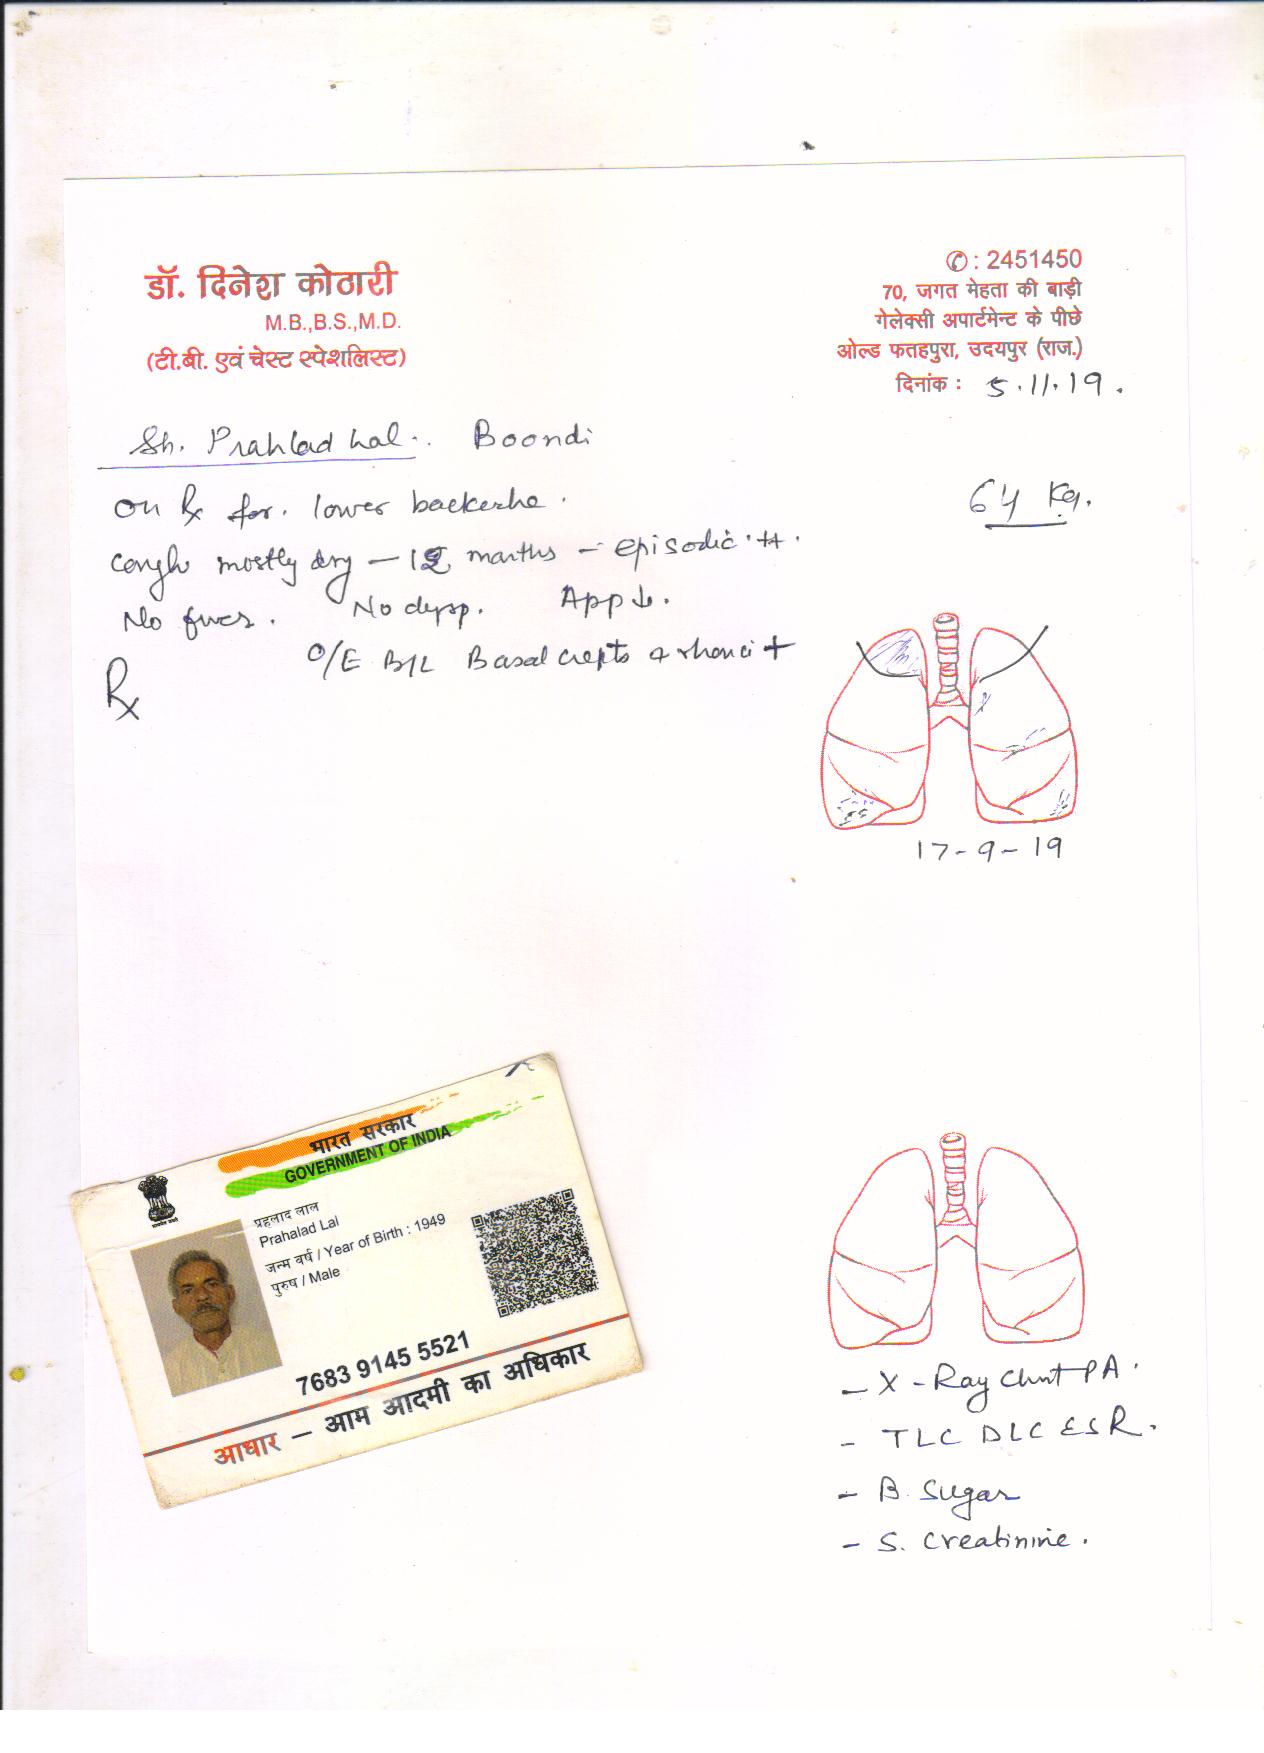 डॉ. दिनेश कोठारी
M.B.,B.S.,M.D.
(टी.बी. एवं चेस्ट स्पेशलिस्ट)
✆ : 2451450
70, जगत मेहता की बाड़ी
गेलेक्सी अपार्टमेन्ट के पीछे
ओल्ड फतहपुरा, उदयपुर (राज.)
दिनांक : 5.11.19.
Sh. Prahlad Lal. Boondi
64 Kg.
On Rx for. lower backache.
Cough mostly dry – months – episodic ++.
No fever. No dysp. App ↓.
O/E B/L Basal crepts + rhonci +
Rx
17-9-19
भारत सरकार
GOVERNMENT OF INDIA
प्रहलाद लाल
Prahalad Lal
जन्म वर्ष / Year of Birth : 1949
पुरुष / Male
7683 9145 5521
आधार – आम आदमी का अधिकार
– X-Ray Chest PA.
– TLC DLC ESR.
– B. Sugar
– S. Creatinine.